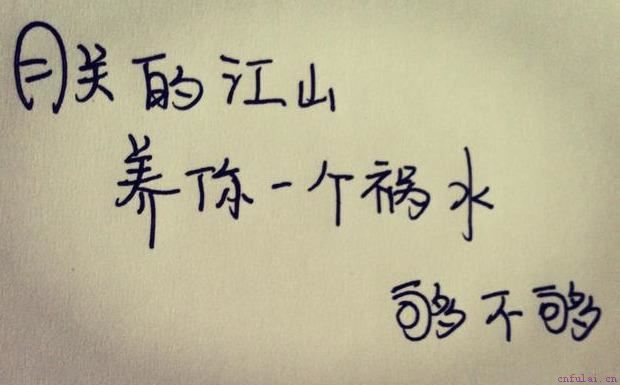 朕的江山
养你一个祸水
够不够
cnfulai.cn